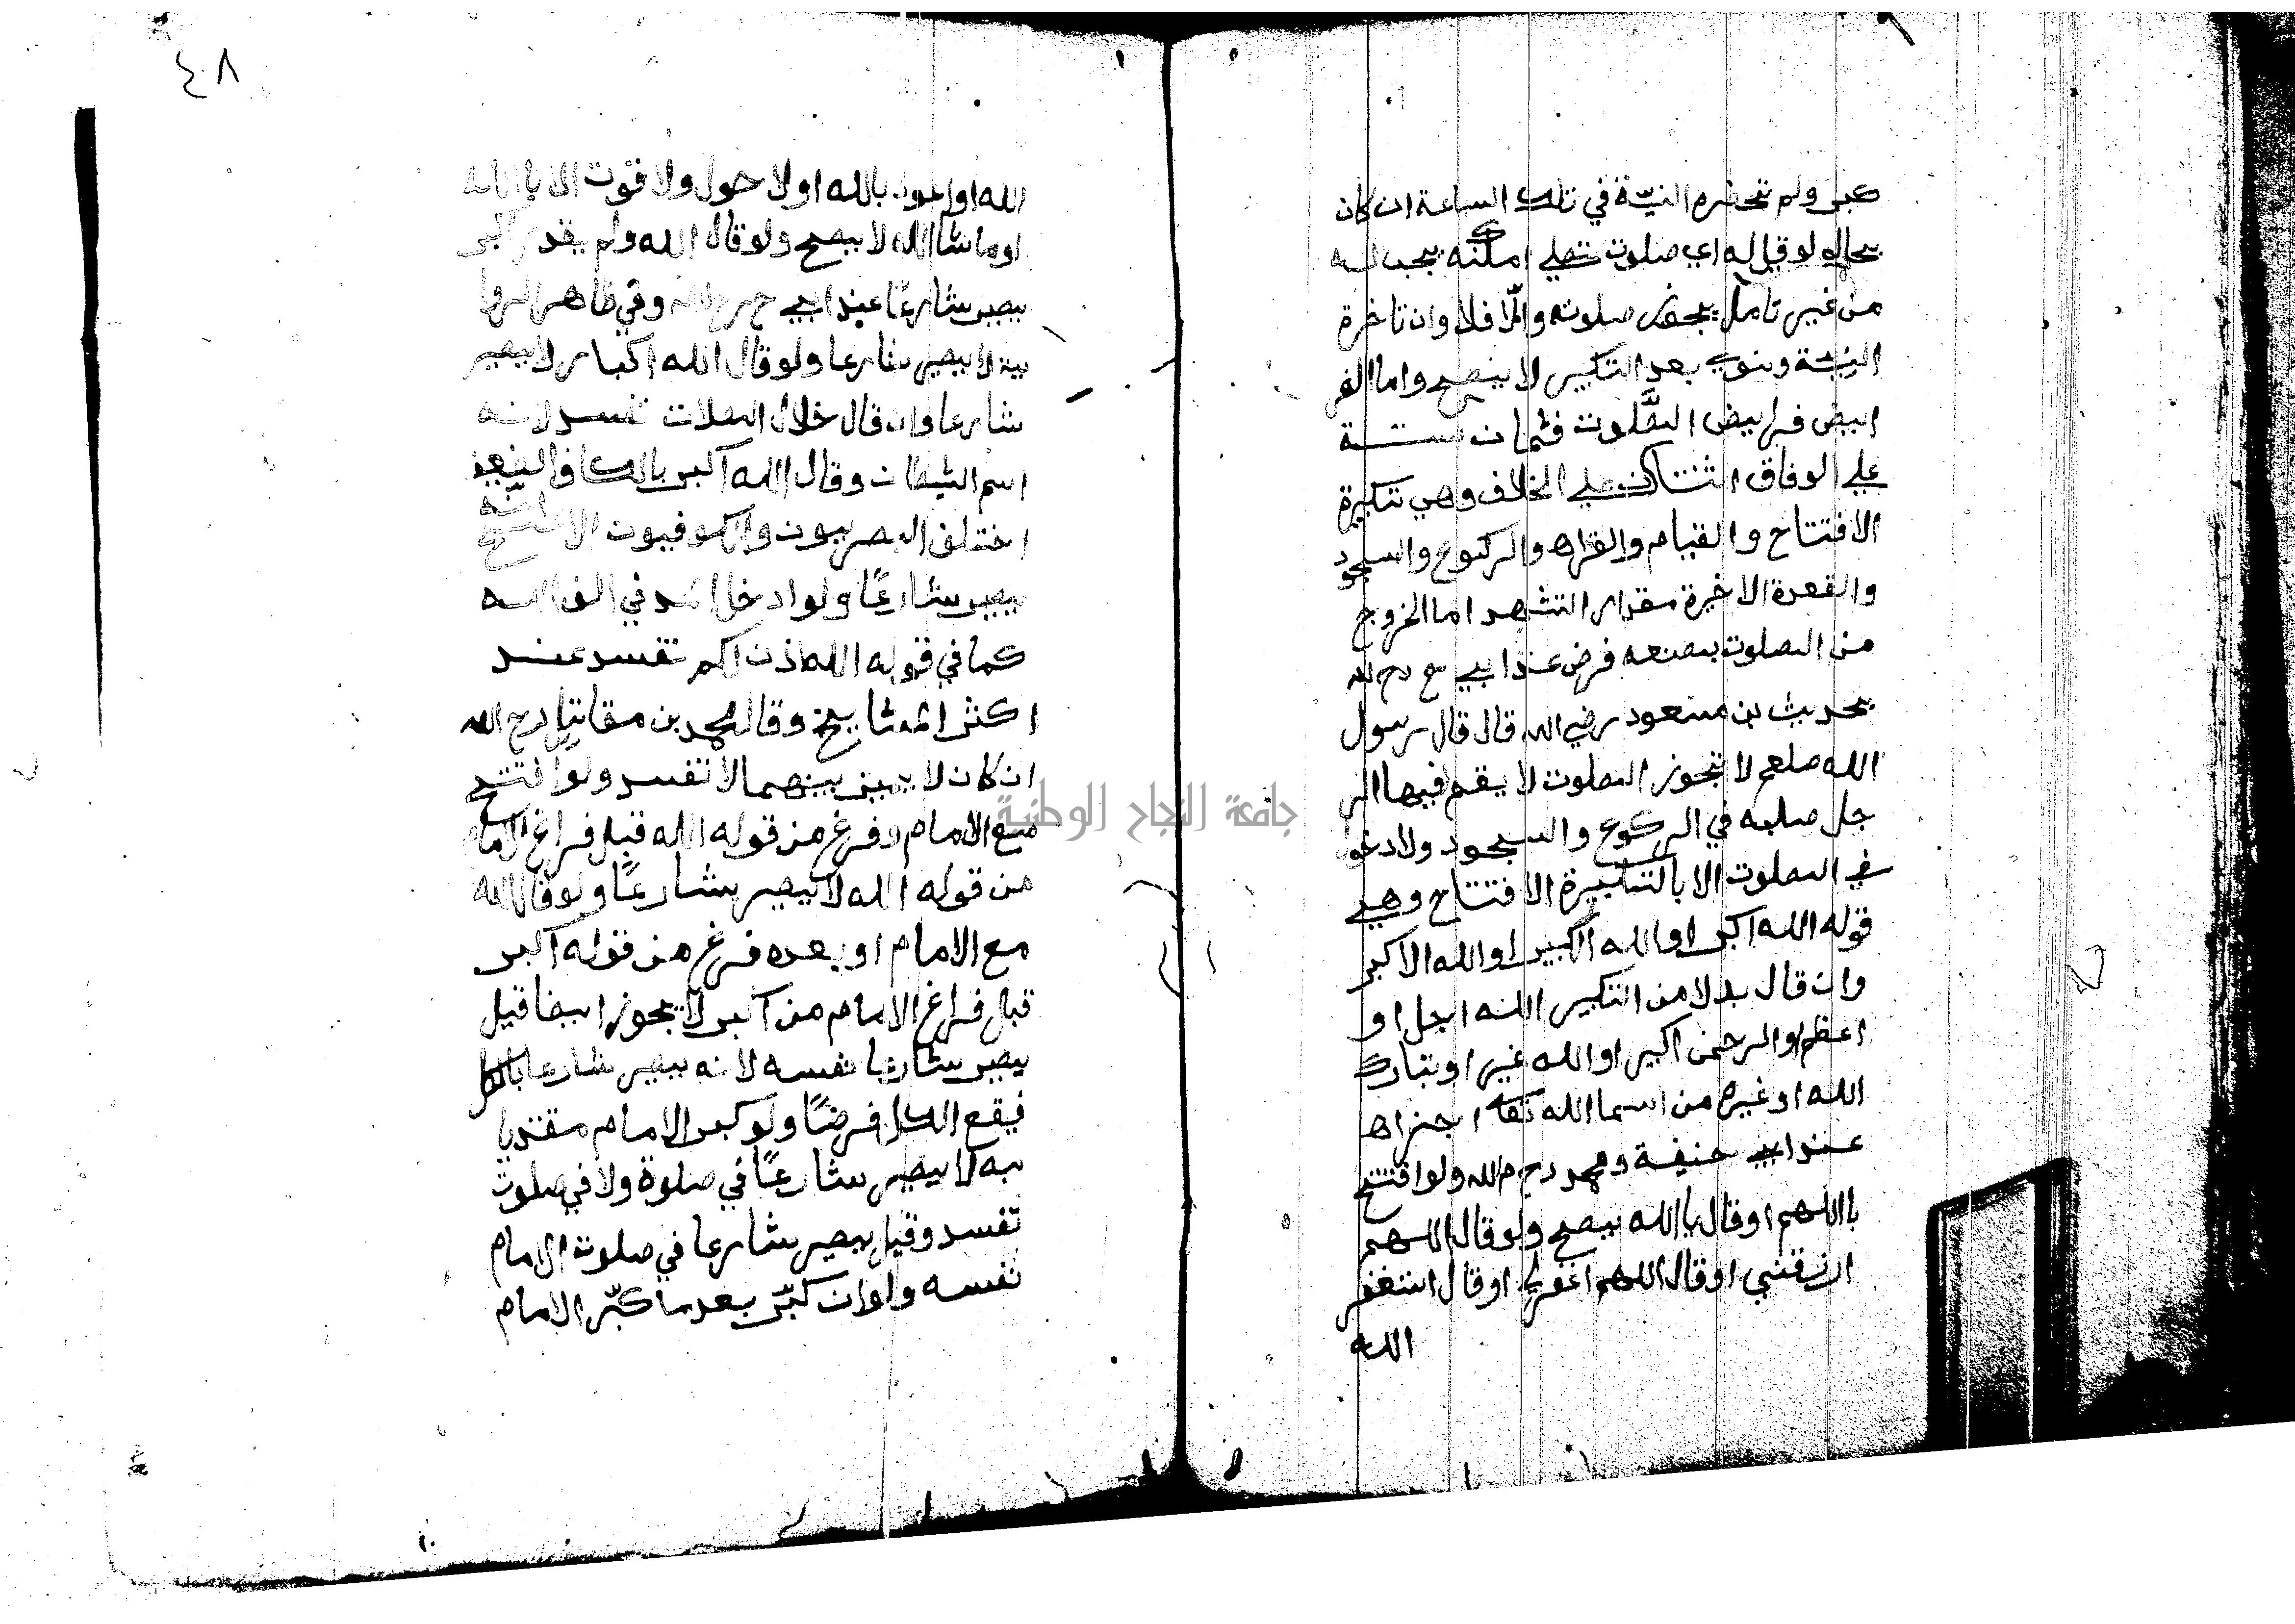 كبر ولم تحضره النية في تلك الساعة ان كان
بحال لو قيل له اي صلوت تصلي امكنه يجب له
من غير تامل يجوز صلوته والّا فلا وان تاخرة
النيّة ونوي بعد التكبير لا يصح واما الفر
ايض فرايض الصَّلوت فثمان ستة
علي الوفاق اثنتان علي الخلاف وهي تكبيرة
الافتتاح والقيام والقراه والركوع والسجود
والقعدة الاخيرة مقدار التشهد اما الخروج
من الصلوت بصنعه فرض عند ابي ح رح الله
بحديث بن مسعود رضي الله قال قال رسول
الله صلعم لا تجوز الصلوت لا يقم فيها الر
جل صلبه في الركوع والسجود ولا دخول
في الصلوت الا بالتكبيرة الافتتاح وهي
قوله الله اكبر او الله الكبير او الله الاكبر
وان قال بدلا من التكبير الله اجل او
اعظم او الرحمن اكبر او الله غير او تبارك
الله او غيره من اسما الله تعا اجزاه
عند ابي حنيفة ومحمد رحم الله ولو افتتح
باللهم او قال يا الله يصح ولو قال اللهم
ارزقني او قال اللهم اغفرلي او قال استغفر
الله
٤٨
الله او اعوذ بالله او لا حول ولا قوت الا بالله
او ماشا الله لا يصح ولو قال الله ولم يقد اكبر
يصير شارعًا عند ابي ح رح الله وفي ظاهر الروا
ية لا يصير شارعا ولو قال الله اكبار لا يصير
شارعا وان قال خلال الصلات تفسد لانه
اسم الشيطان وقال الله اكبر بالكاف
اختلف البصريون والكوفيون الاصح انه
يصير شارعًا ولو ادخل المد في الف الله
كما في قوله الله اذن لكم تفسد عند
اكثر المشايخ وقال محمد بن مقاتل رح الله
ان كان لا يميز بينهما لا تفسد ولو افتتح
مع الامام وفرغ من قوله الله قبل فراغ الامام
من قوله الله لا يصير شارعًا ولو قال الله
مع الامام او بعده فرغ من قوله اكبر
قبل فراغ الامام من اكبر لا يجوز ايضا قيل
يصير شارعا نفسه لانه يصير شارعا بالكل
فيقع الكل فرضًا ولو كبر الامام مقتديا
به لا يصير شارعًا في صلوة ولا في صلوت
تفسد وقيل يصير شارعا في صلوت الامام
نفسه ولو ان كبّر بعد ما كبّر الامام
جامعة النجاح الوطنية